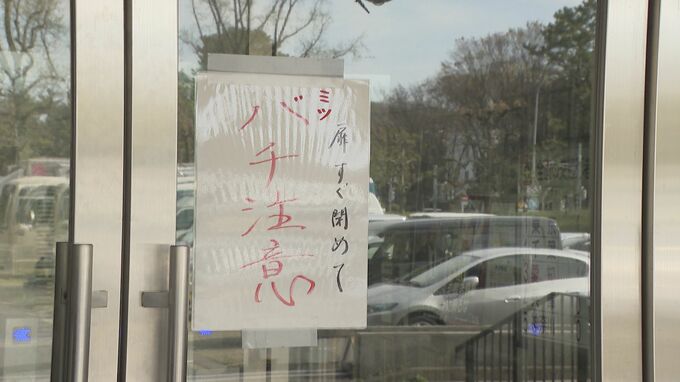 ミツ
バチ注意
扉すぐ閉めて